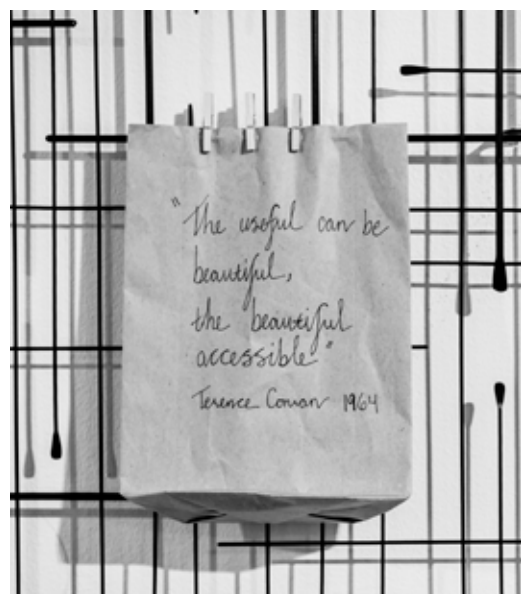 "The useful can be
beautiful,
the beautiful
accessible"
Terence Conran 1964